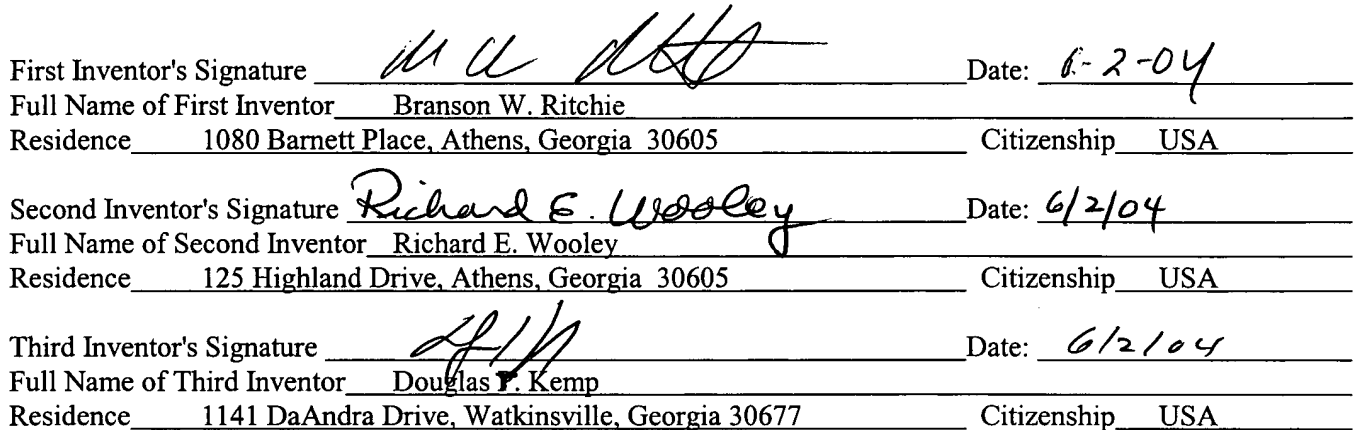 First Inventor's Signature Date: 6-2-04
Full Name of First Inventor Branson W. Ritchie
Residence 1080 Barnett Place, Athens, Georgia 30605 Citizenship USA
Second Inventor's Signature Richard E. Wooley Date: 6/2/04
Full Name of Second Inventor Richard E. Wooley
Residence 125 Highland Drive, Athens, Georgia 30605 Citizenship USA
Third Inventor's Signature Date: 6/2/04
Full Name of Third Inventor Douglas Kemp
Residence 1141 DaAndra Drive, Watkinsville, Georgia 30677 Citizenship USA